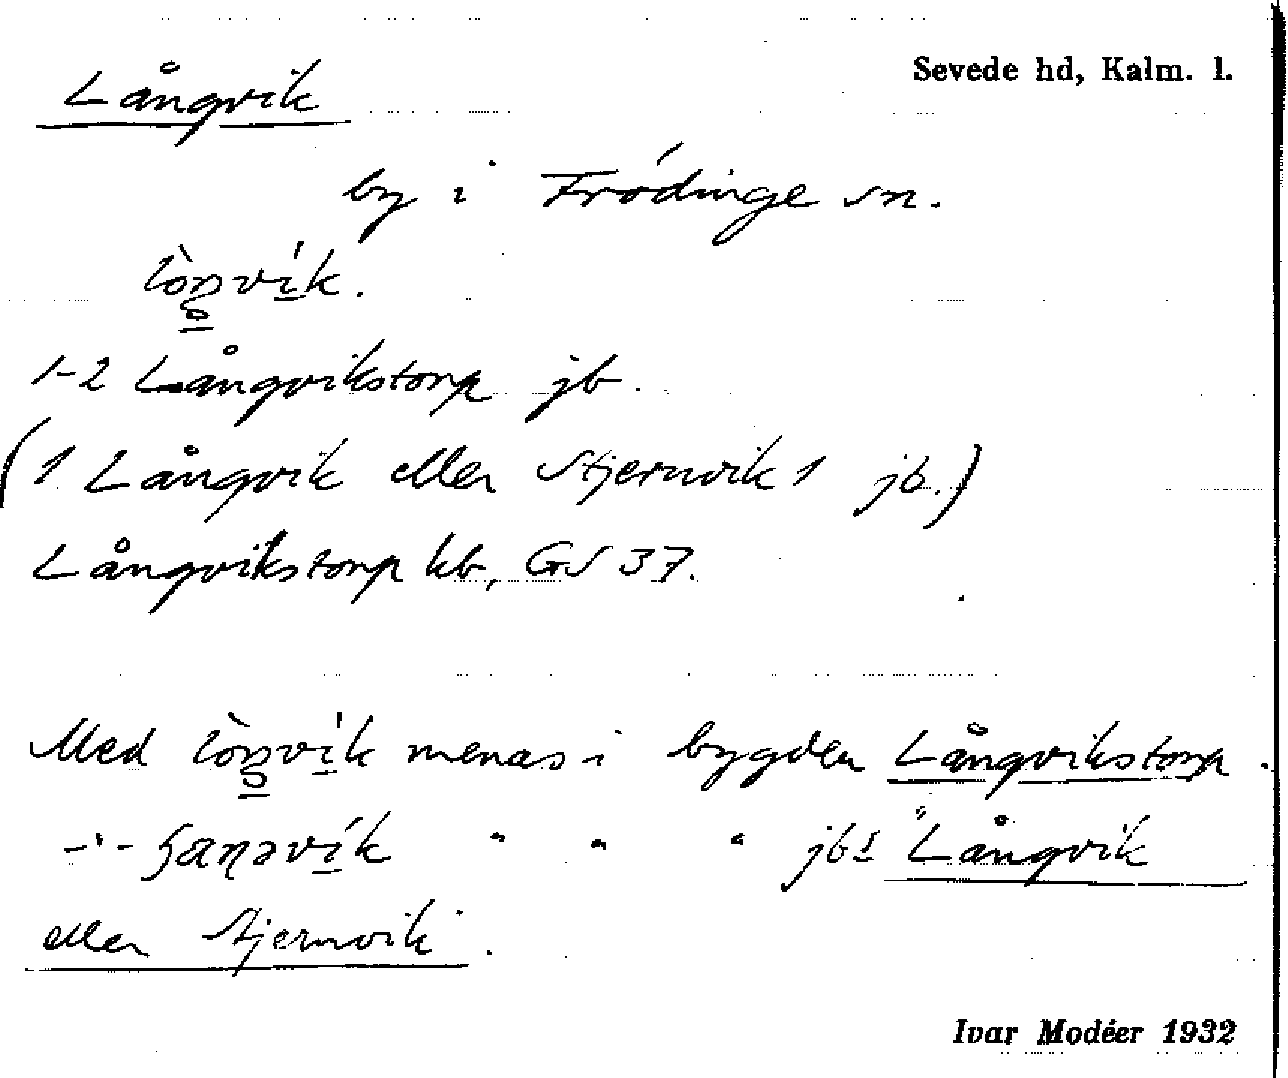 Långvik
Sevede hd, Kalm. l.
by i Frödinge sn.
1-2 Långvikstorp jb.
(1 Långvik eller Stjernvik 1 jb.)
Långvikstorp kb, GS 37.
Med menas i bygden Långvikstorp.
-"- " " " jb:s "Långvik
eller Stjernvik".
Ivar Modéer 1932